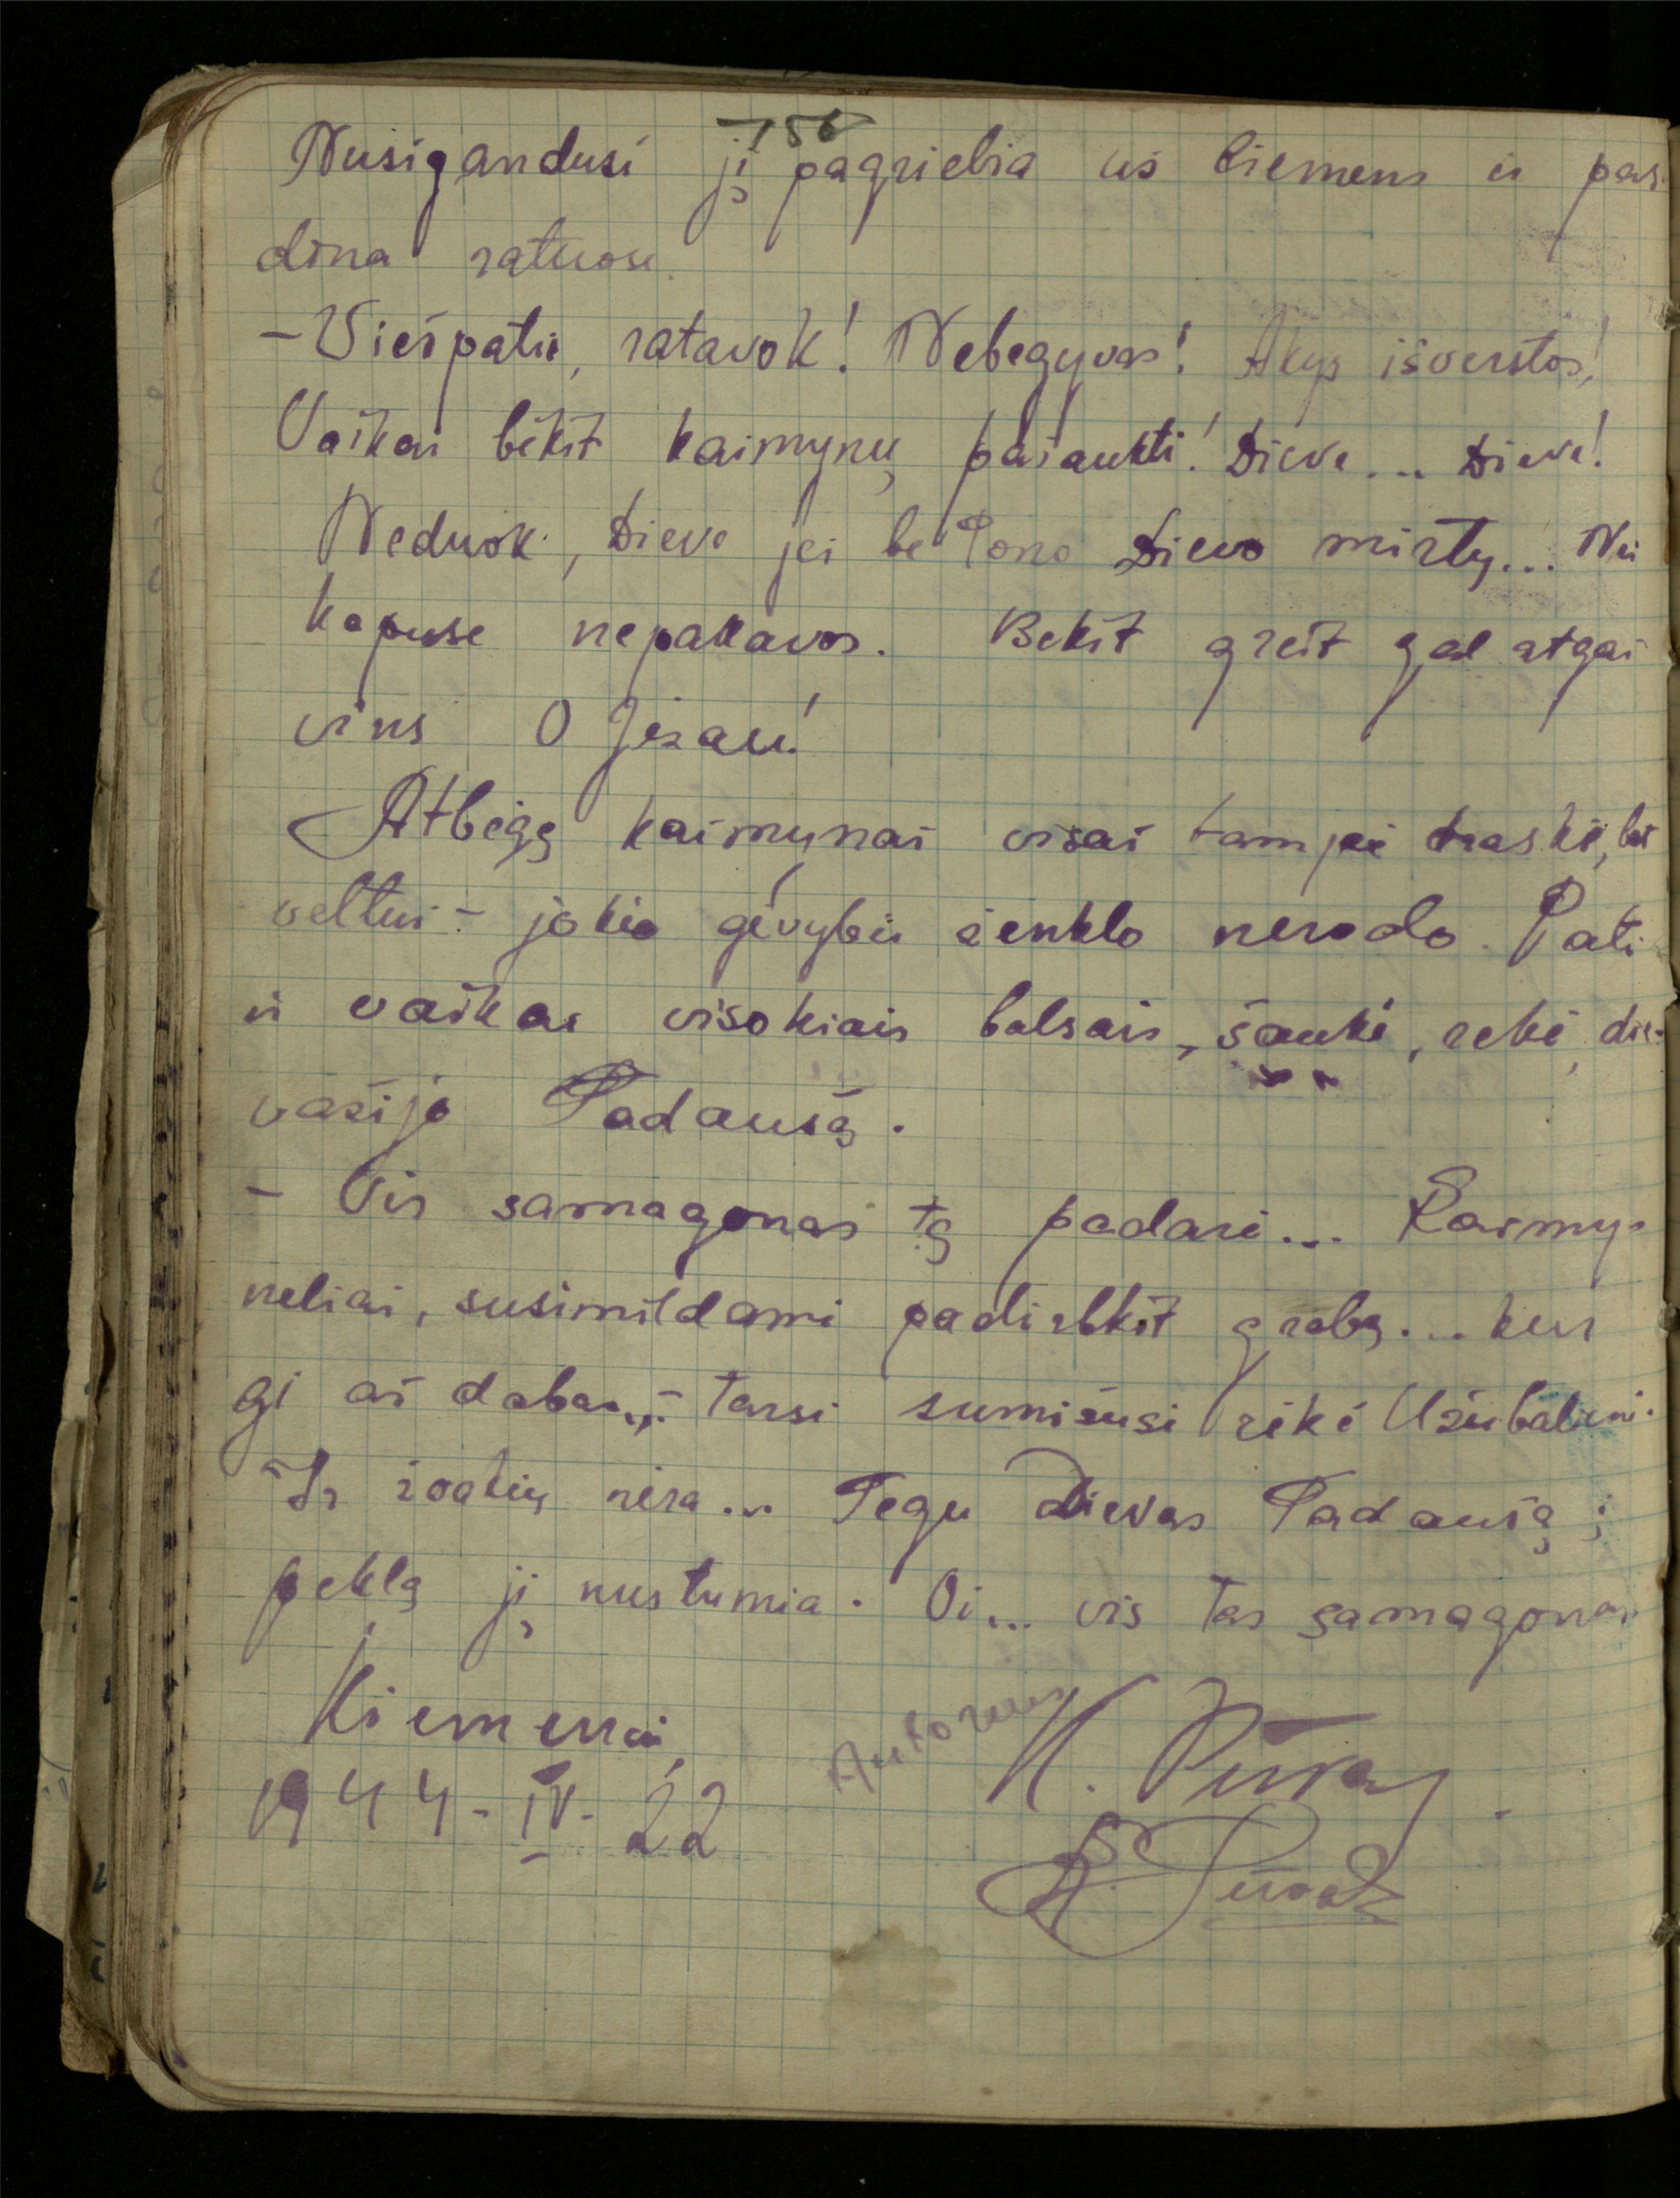 156
Nusigandusi jį pagriebia už liemens ir paso-
dina ratuose.
- Viešpatie, ratavok! Nebegyvas! Akys išverstos!
Vaikai bėkit kaimynų pašaukti! Dieve... Dieve!
Neduok, Dieve jei be Pono Dievo mirtų... Nei
kapuse nepakavos. Bėkit greit gal atgai
vins O Jėzau!
Atbėgę kaimynai visai tampė draskė, bet
veltui - jokio gėvybės ženklo nerodo. Pati
ir vaikai visokiais balsais, šaukė, rėkė, die-
važijo Tadaušą.
- Vis samagonas tą padarė... Kaimy-
neliai, susimildami padirbkit grabą... kur
gi aš dabar... - tarsi sumišusi rėkė Užubalienė.
- Ir žvakių nėra... Tegu Dievas Tadaušą į
peklą jį nustumia. Oi... vis tas samagonas
Kiemenai,
1944-IV-22
Autorius K. Pūras.
K. Pūras